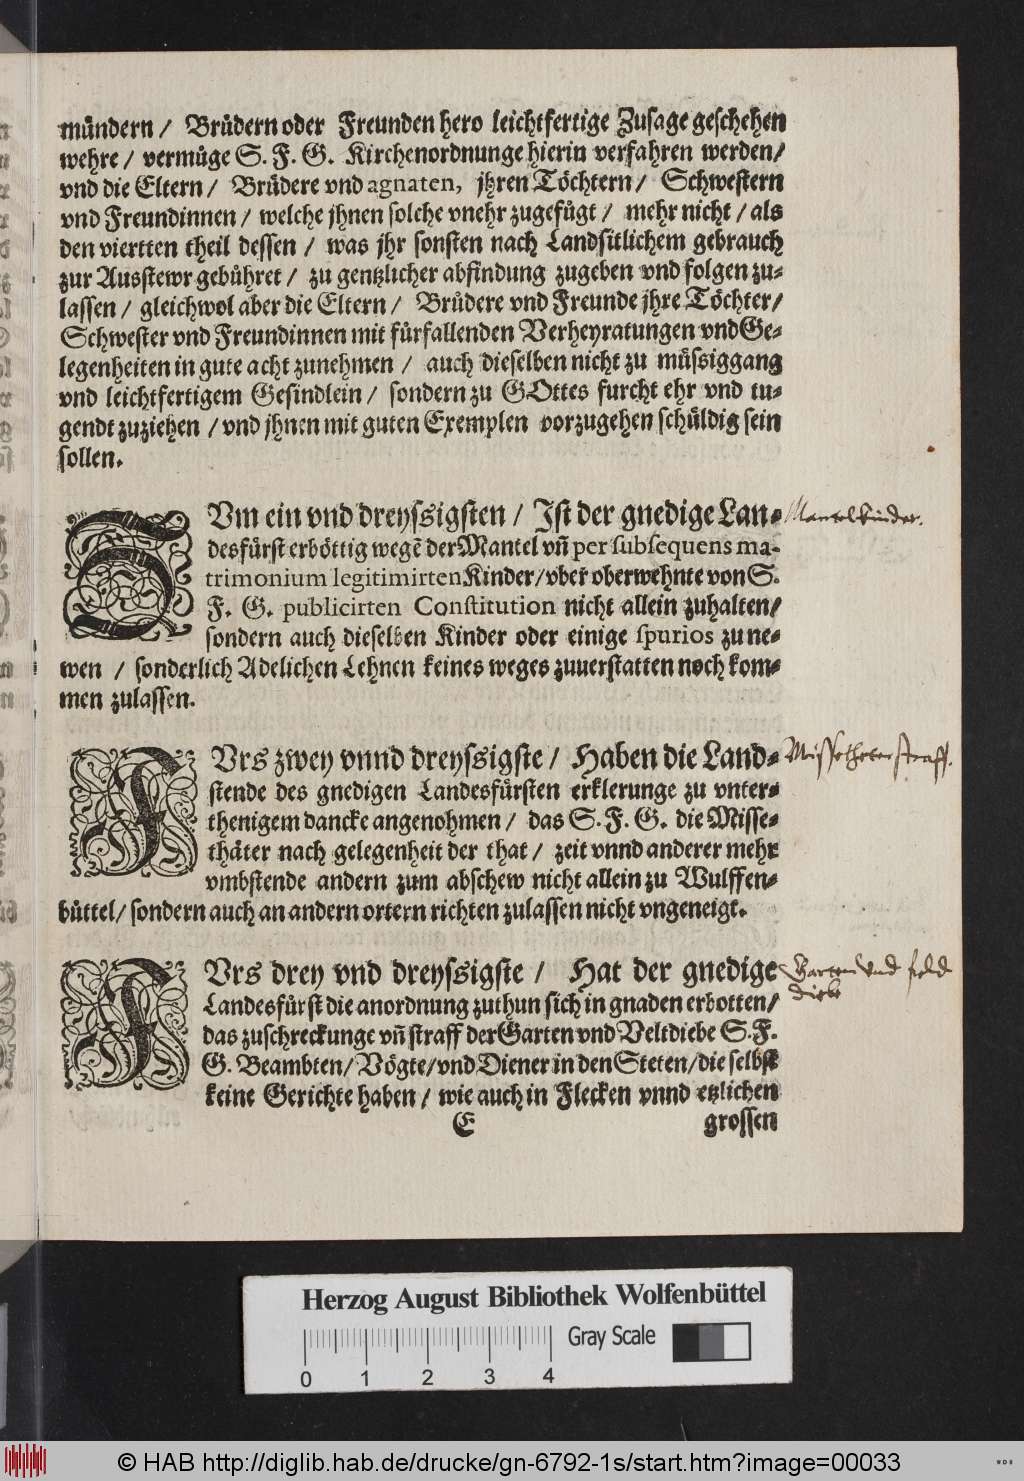 mündern / Brüdern oder Freunden hero leichtfertige Zusage geschehen
wehre / vermüge S. F. G. Kirchenordnunge hierin verfahren werden /
vnd die Eltern / Brüdere vnd agnaten, jhren Töchtern / Schwestern
vnd Freundinnen / welche jhnen solche vnehr zugefügt / mehr nicht / als
den viertten theil dessen / was jhr sonsten nach Landsitlichem gebrauch
zur Ausstewr gebühret / zu gentzlicher abfindung zugeben vnd folgen zu-
lassen / gleichwol aber die Eltern / Brüdere vnd Freunde jhre Töchter /
Schwester vnd Freundinnen mit fürfallenden Verheyratungen vnd Ge-
legenheiten in gute acht zunehmen / auch dieselben nicht zu müssiggang
vnd leichtfertigem Gesindlein / sondern zu GOttes furcht ehr vnd tu-
gendt zuziehen / vnd jhnen mit guten Exemplen vorzugehen schüldig sein
sollen.
ZUm ein vnd dreyssigsten / Ist der gnedige Lan-
Mantelkinder.
desfürst erböttig wegē der Mantel vn̄ per subsequens ma-
trimonium legitimirten Kinder / vber oberwehnte von S.
F. G. publicirten Constitution nicht allein zuhalten /
sondern auch dieselben Kinder oder einige spurios zu ne-
wen / sonderlich Adelichen Lehnen keines weges zuuerstatten noch kom-
men zulassen.
FUrs zwey vnnd dreyssigste / Haben die Land-
Missetheter straff.
stende des gnedigen Landesfürsten erklerunge zu vnter-
thenigem dancke angenohmen / das S. F. G. die Misse-
thäter nach gelegenheit der that / zeit vnnd anderer mehr
vmbstende andern zum abschew nicht allein zu Wulffen-
büttel / sondern auch an andern ortern richten zulassen nicht vngeneigt.
FUrs drey vnd dreyssigste / Hat der gnedige
Garten vnd feld
diebe
Landesfürst die anordnung zuthun sich in gnaden erbotten /
das zuschreckunge vn̄ straff der Garten vnd Veltdiebe S. F.
G. Beambten / Vögte / vnd Diener in den Steten / die selbst
keine Gerichte haben / wie auch in Flecken vnnd etzlichen
E grossen
Herzog August Bibliothek Wolfenbüttel
Gray Scale
0 1 2 3 4
© HAB http://diglib.hab.de/drucke/gn-6792-1s/start.htm?image=00033